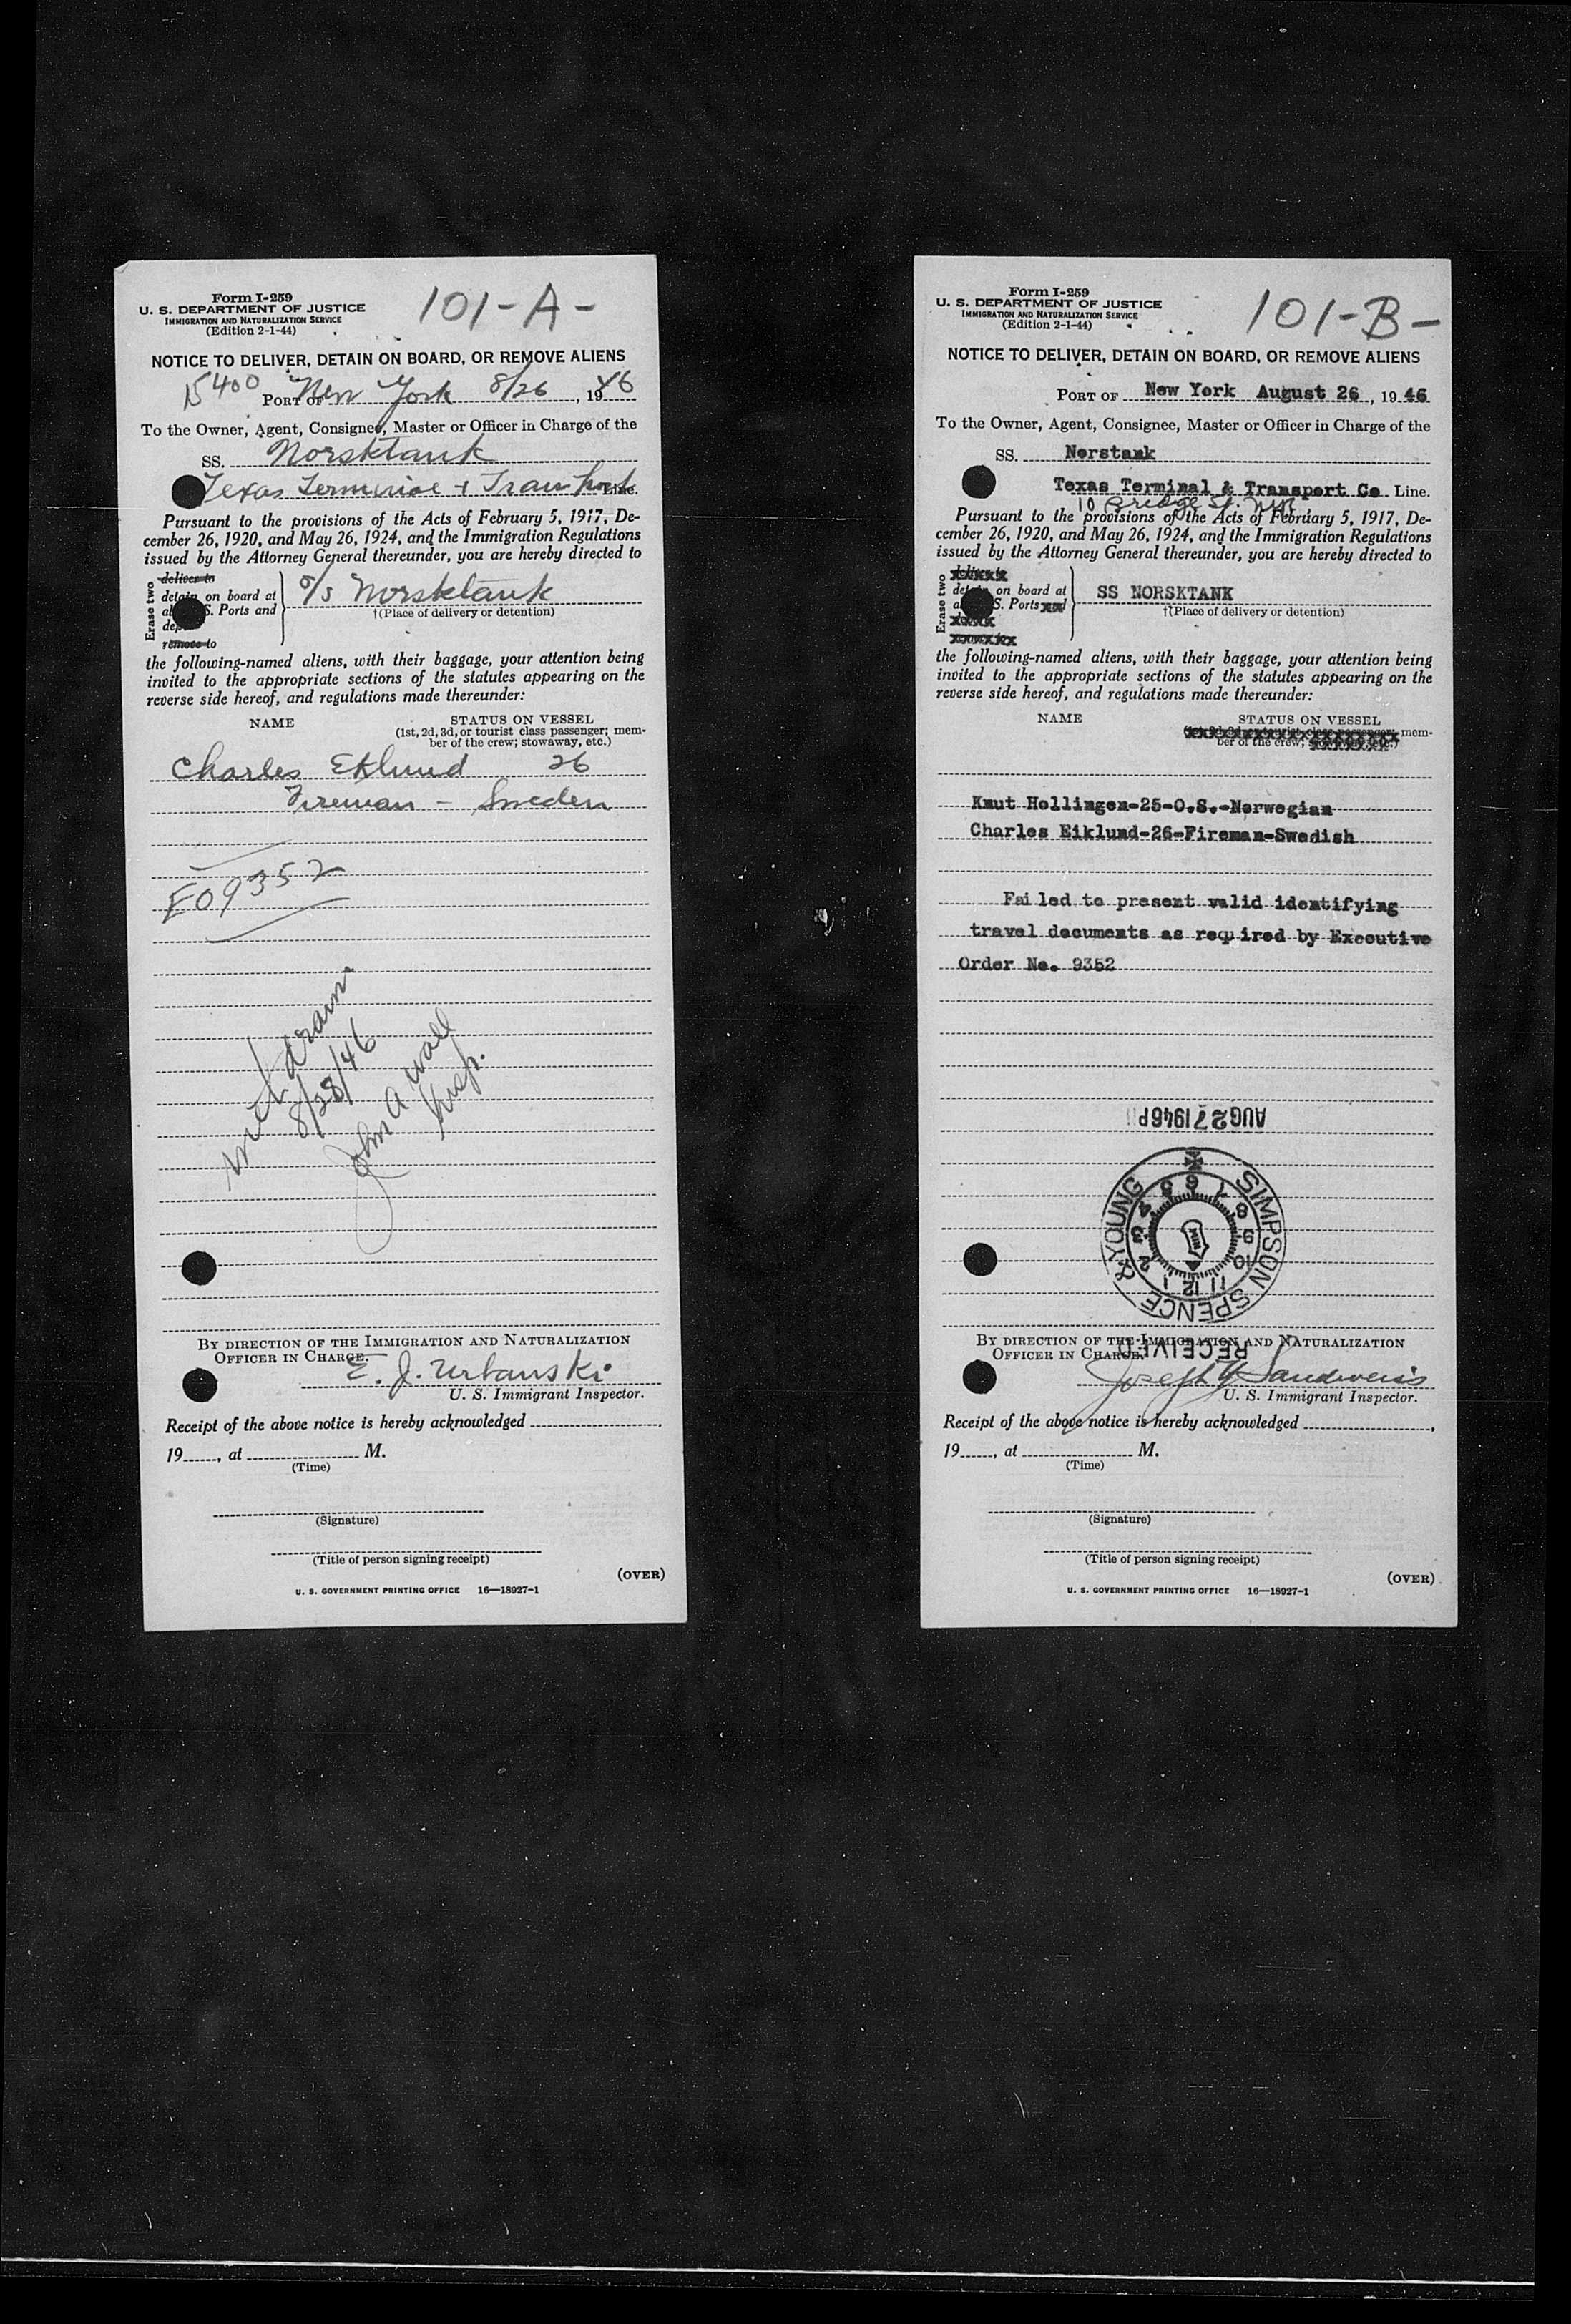 Form I-259
U. S. DEPARTMENT OF JUSTICE
IMMIGRATION AND NATURALIZATION SERVICE
(Edition 2-1-44)
101-A-
NOTICE TO DELIVER, DETAIN ON BOARD, OR REMOVE ALIENS
15400
PORT OF New York 8/26, 1946
To the Owner, Agent, Consignee, Master or Officer in Charge of the
SS. Norsktank
Texas Terminal + Transport Line.
Pursuant to the provisions of the Acts of February 5, 1917, De-
cember 26, 1920, and May 26, 1924, and the Immigration Regulations
issued by the Attorney General thereunder, you are hereby directed to
Erase two
deliver to
detain on board at
S. Ports and
remove to
o/s Norsktank
†(Place of delivery or detention)
the following-named aliens, with their baggage, your attention being
invited to the appropriate sections of the statutes appearing on the
reverse side hereof, and regulations made thereunder:
NAME
STATUS ON VESSEL
(1st, 2d, 3d, or tourist class passenger; mem-
ber of the crew; stowaway, etc.)
Charles Eklund 26
Fireman - Sweden
EO9352
withdrawn
8/28/46
John A Wall
Insp.
BY DIRECTION OF THE IMMIGRATION AND NATURALIZATION
OFFICER IN CHARGE.
E. J. Urbanski
U. S. Immigrant Inspector.
Receipt of the above notice is hereby acknowledged
19 , at M.
(Time)
(Signature)
(Title of person signing receipt)
(OVER)
U. S. GOVERNMENT PRINTING OFFICE 16—18927-1
Form I-259
U. S. DEPARTMENT OF JUSTICE
IMMIGRATION AND NATURALIZATION SERVICE
(Edition 2-1-44)
101-B-
NOTICE TO DELIVER, DETAIN ON BOARD, OR REMOVE ALIENS
PORT OF New York August 26, 1946
To the Owner, Agent, Consignee, Master or Officer in Charge of the
SS. Norstank
Texas Terminal & Transport Co Line.
10 Bridge St. NYC
Pursuant to the provisions of the Acts of February 5, 1917, De-
cember 26, 1920, and May 26, 1924, and the Immigration Regulations
issued by the Attorney General thereunder, you are hereby directed to
Erase two
on board at
S. Ports
SS NORSKTANK
†(Place of delivery or detention)
the following-named aliens, with their baggage, your attention being
invited to the appropriate sections of the statutes appearing on the
reverse side hereof, and regulations made thereunder:
NAME
STATUS ON VESSEL
mem-
ber of the crew;
Knut Hollingen-25-O.S.-Norwegian
Charles Eiklund-26-Fireman-Swedish
Failed to present valid identifying
travel documents as required by Executive
Order No. 9352
AUG 27 1946 P
SIMPSON SPENCE & YOUNG
12 1 2 3 4 5 6 7 8 9 10 11
RECEIVED
BY DIRECTION OF THE IMMIGRATION AND NATURALIZATION
OFFICER IN CHARGE.
Joseph Y Sandweiss
U. S. Immigrant Inspector.
Receipt of the above notice is hereby acknowledged
19 , at M.
(Time)
(Signature)
(Title of person signing receipt)
(OVER)
U. S. GOVERNMENT PRINTING OFFICE 16—18927-1